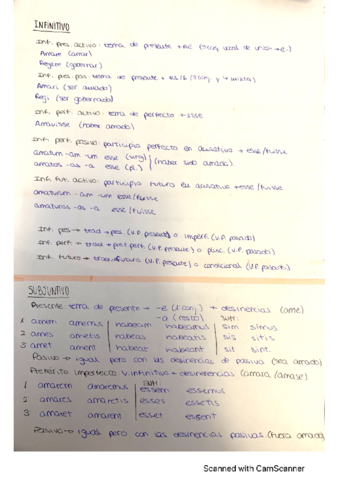 INFINITIVO
Inf. pres. activo: tema de presente + RE
Amare (amar)
Regere (gobernar)
Inf. pres. pas: tema de presente +
Amari (ser amado)
Regi (ser gobernado)
Inf. perf. activo: tema de perfecto + isse
Amavisse (haber amado)
Inf. perf. pasivo: participio perfecto en acusativo + esse/fuisse
amatum -am -um esse (sing)
amatos -as -a esse (pl.)
(haber sido amado)
Inf. fut. activo: participio futuro en acusativo + esse/fuisse
amaturum -am -um esse/fuisse
amaturos -as -a esse/fuisse
Inf. pres → trad → pres. (V.P. presente) o imperf. (V.P. pasado)
Inf. perf → trad → pret. perf. (V.P. presente) o plusc. (V.P. pasado)
Inf. futuro → trad → futuro (V.P. presente) o condicional (V.P. pasado)
SUBJUNTIVO
Presente: tema de presente → -e (1ª conj) + desinencias (ame)
-a (resto) SUM:
1 amem amemus habeam habeamus sim simus
2 ames ametis habeas habeatis sis sitis
3 amet ament habeat habeant sit sint
Pasiva → igual pero con las desinencias de pasiva (sea amado)
Pretérito imperfecto: v. infinitivo + desinencias (amara/amase)
SUM:
1 amarem amaremus essem essemus
2 amares amaretis esses essetis
3 amaret amarent esset essent
Pasiva → igual pero con las desinencias pasivas (fuera amado)
Scanned with CamScanner